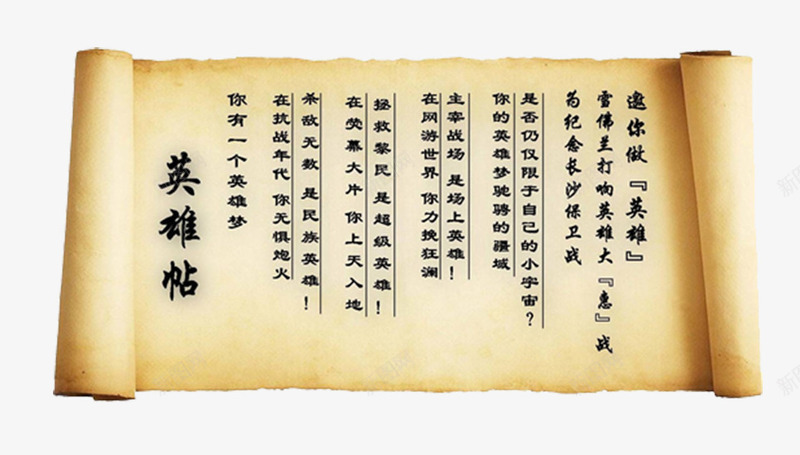 英雄帖
你有一个英雄梦
在抗战年代 你无惧炮火
杀敌无数 是民族英雄！
在荧幕大片 你上天入地
拯救黎民 是超级英雄！
在网游世界 你力挽狂澜
主宰战场 是场上英雄！
你的英雄梦驰骋的疆域
是否仍仅限于自己的小宇宙？
为纪念长沙保卫战
雪佛兰打响英雄大『惠』战
邀你做『英雄』